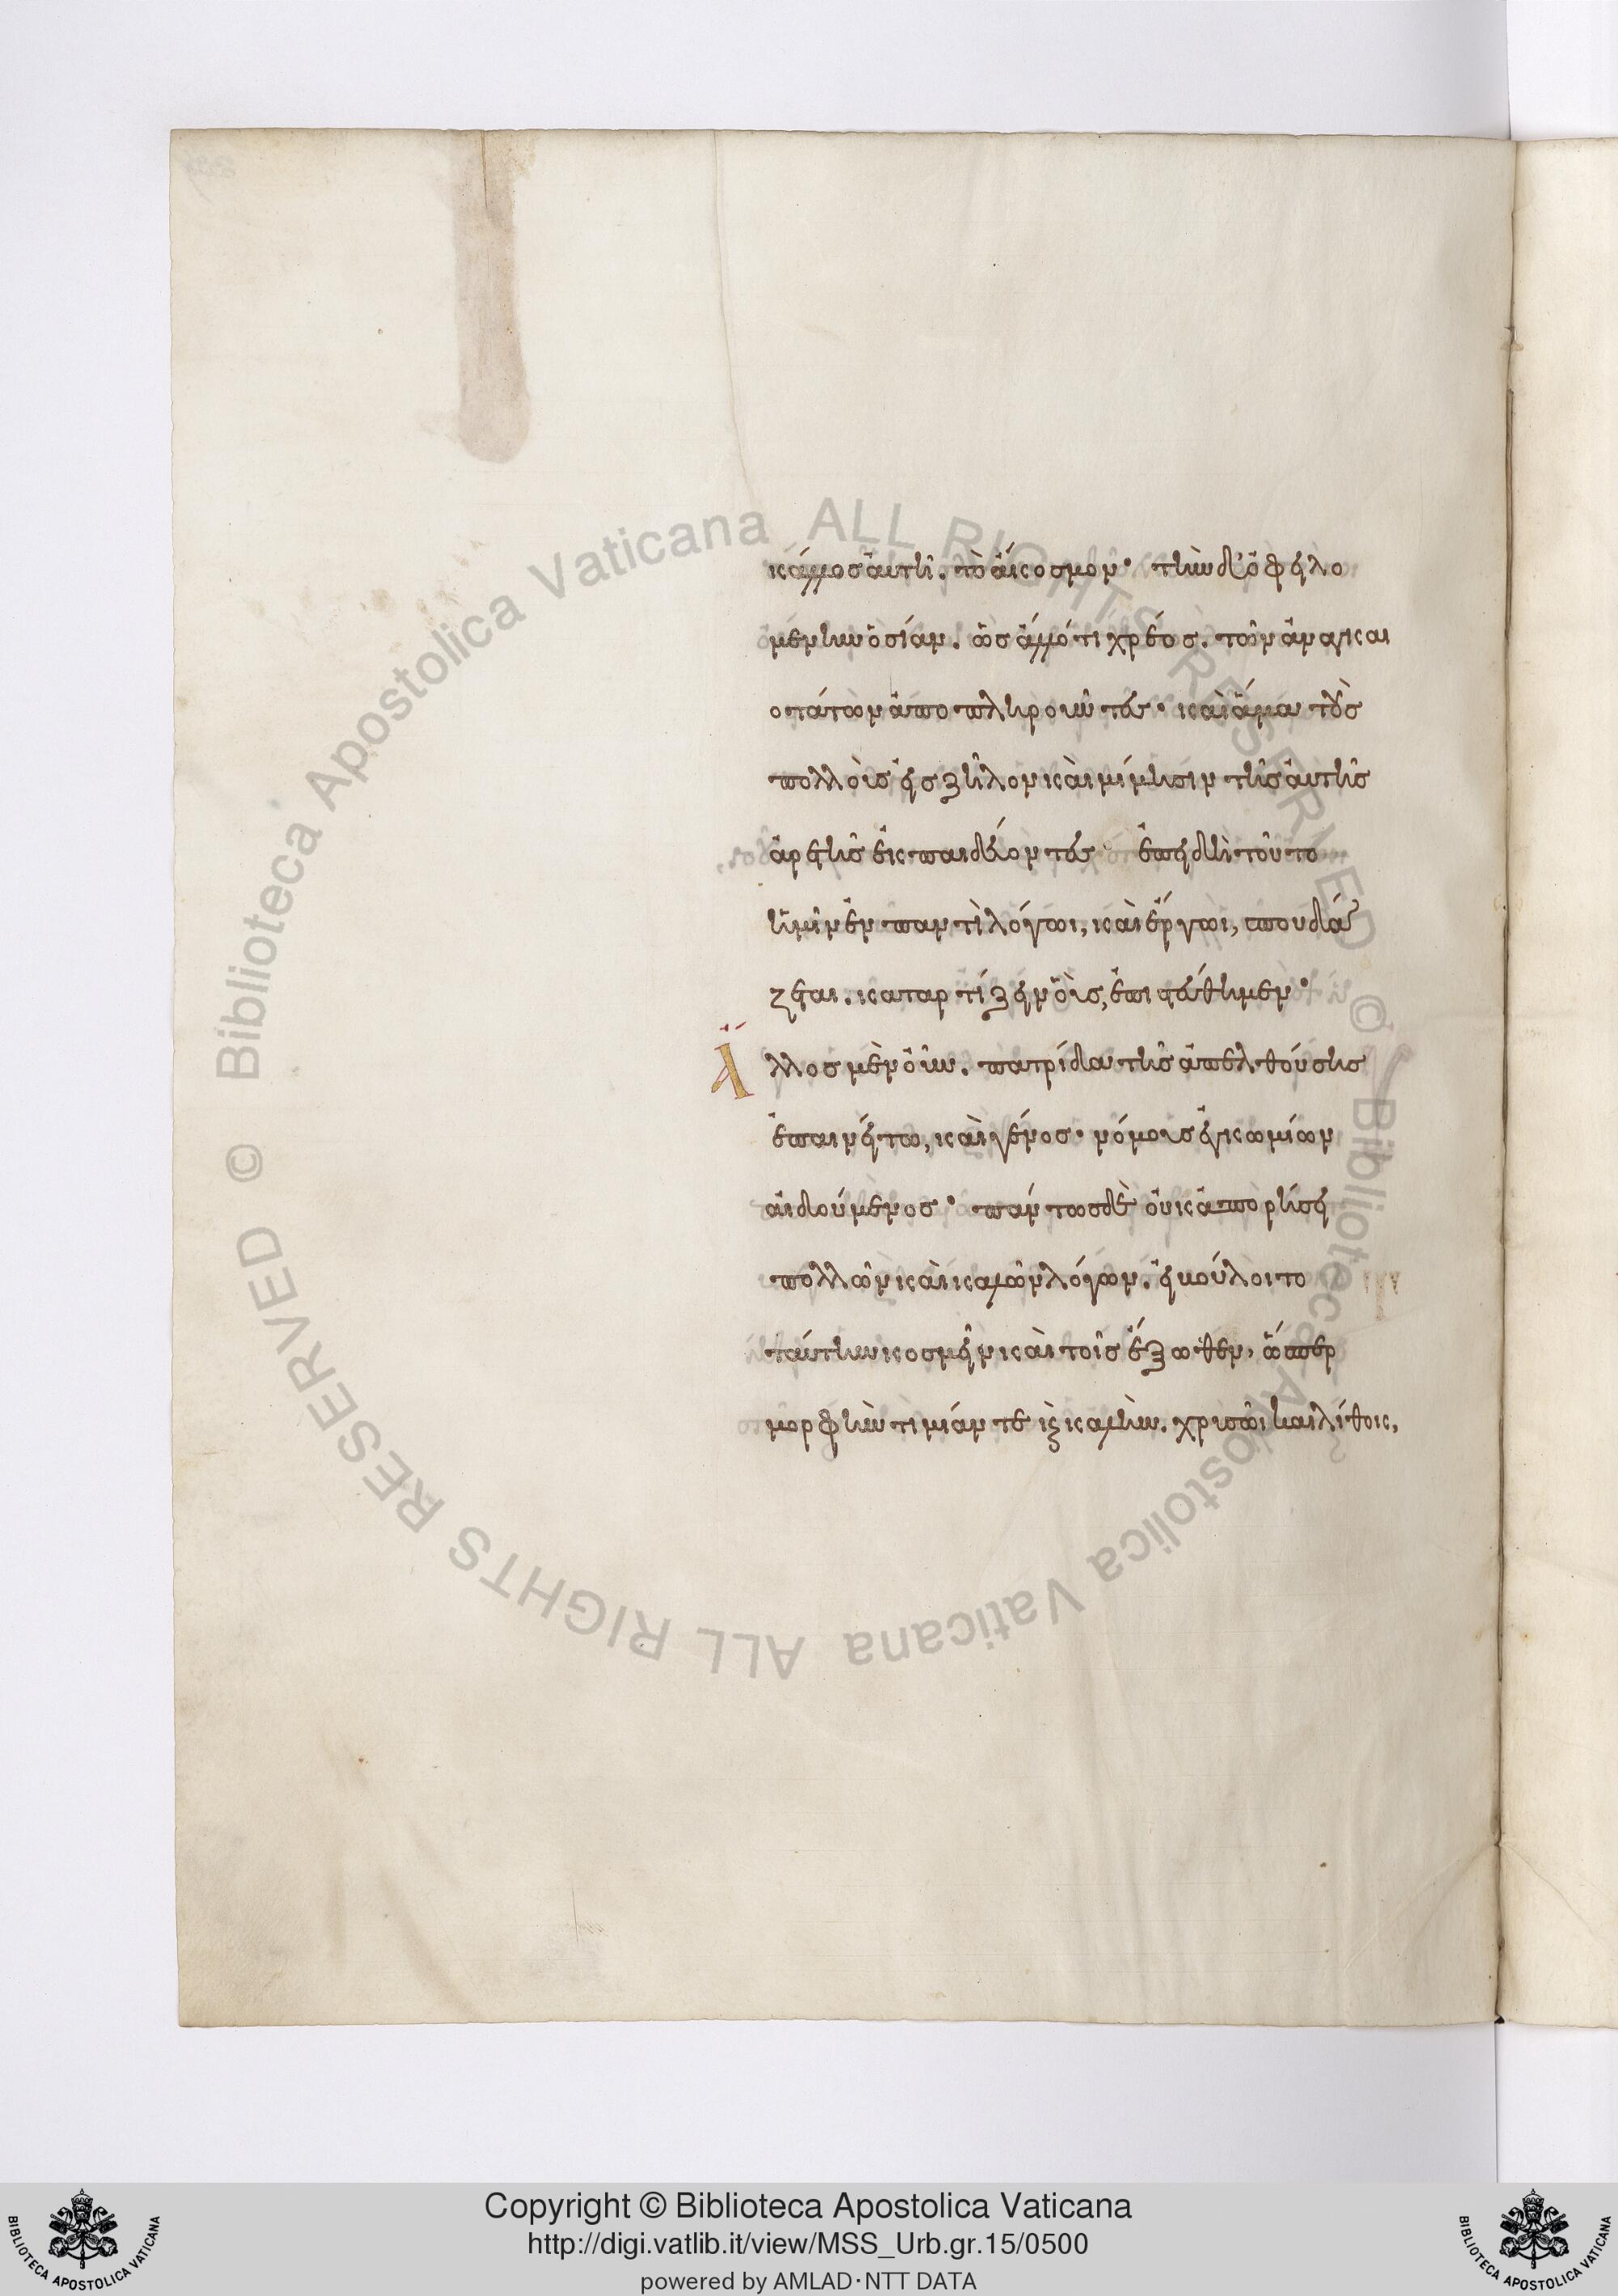 κάλλος αὐτῆ. τὸ ἄκοσμον· τὴν δ' ὀφειλο
μένην ὁσίαν. ὡς ἄλλό τι χρέος. τῶν ἀναγκαι
οτάτων ἀποπληροῦντας· καὶ ἅμα τοὺς
πολλοὺς εἰς ζῆλον καὶ μίμησιν τῆς αὐτῆς
ἀρετῆς ἐκπαιδεύοντας ἐπειδὴ τοῦτο
ἡμῖν ἐν παντὶ λόγωι, καὶ ἔργωι, σπουδά
ζεται. καταρτίζειν οἷς, ἐπιστάθημεν·
Ἄλλος μὲν οὖν. πατρίδα τῆς ἀπελθούσης
ἐπαινείτω, καὶ γένος· νόμους ἐγκωμίων
αἰδούμενος· πάντως δὲ οὐκ ἀπορήσει
πολλῶν καὶ καλῶν λόγων. εἰ βούλοιτο
ταύτην κοσμεῖν καὶ τοῖς ἔξωθεν, ὥσπερ
μορφὴν τιμίαν τε καὶ καλὴν. χρυσῶι καὶ λίθοις,
Copyright © Biblioteca Apostolica Vaticana
http://digi.vatlib.it/view/MSS_Urb.gr.15/0500
powered by AMLAD·NTT DATA
BIBLIOTECA APOSTOLICA VATICANA
BIBLIOTECA APOSTOLICA VATICANA
© Biblioteca Apostolica Vaticana ALL RIGHTS RESERVED © Biblioteca Apostolica Vaticana ALL RIGHTS RESERVED